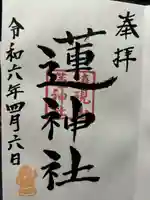 奉拝
蓮神社
令和六年四月六日